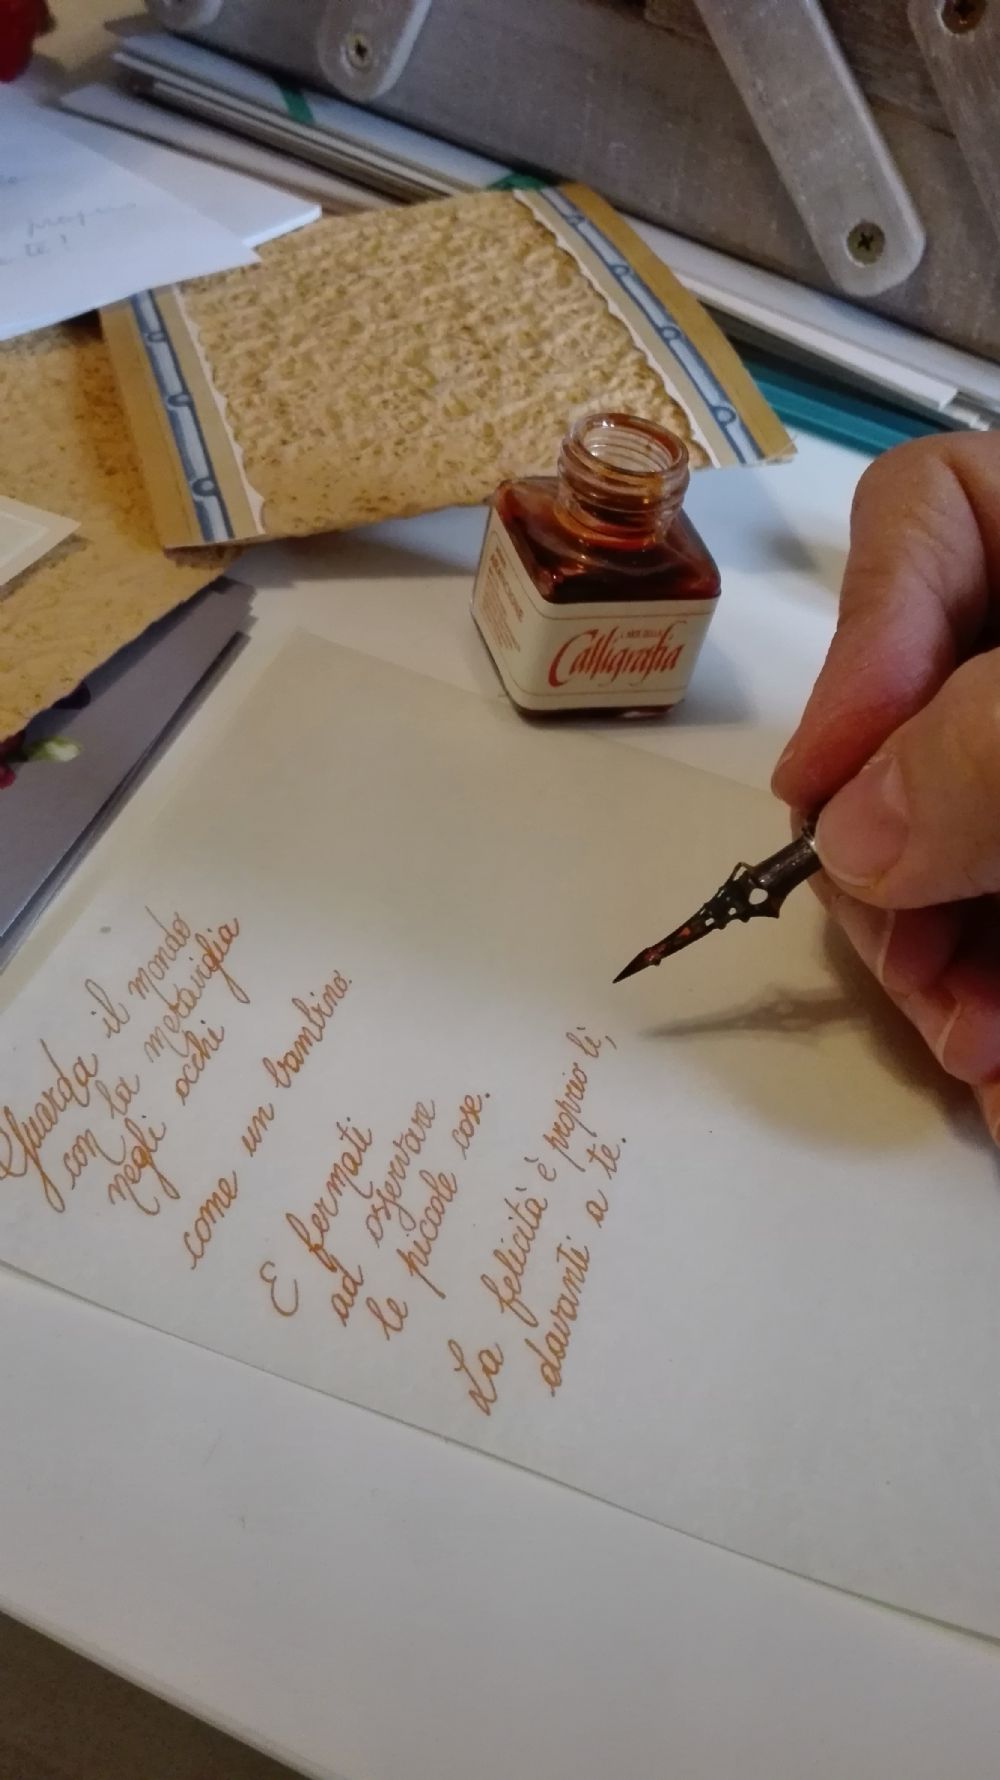 Guarda il mondo
con la meraviglia
negli occhi
come un bambino.
E fermati
ad osservare
le piccole cose.
La felicità è proprio lì,
davanti a te.
L'ARTE DELLA
Calligrafia
te!